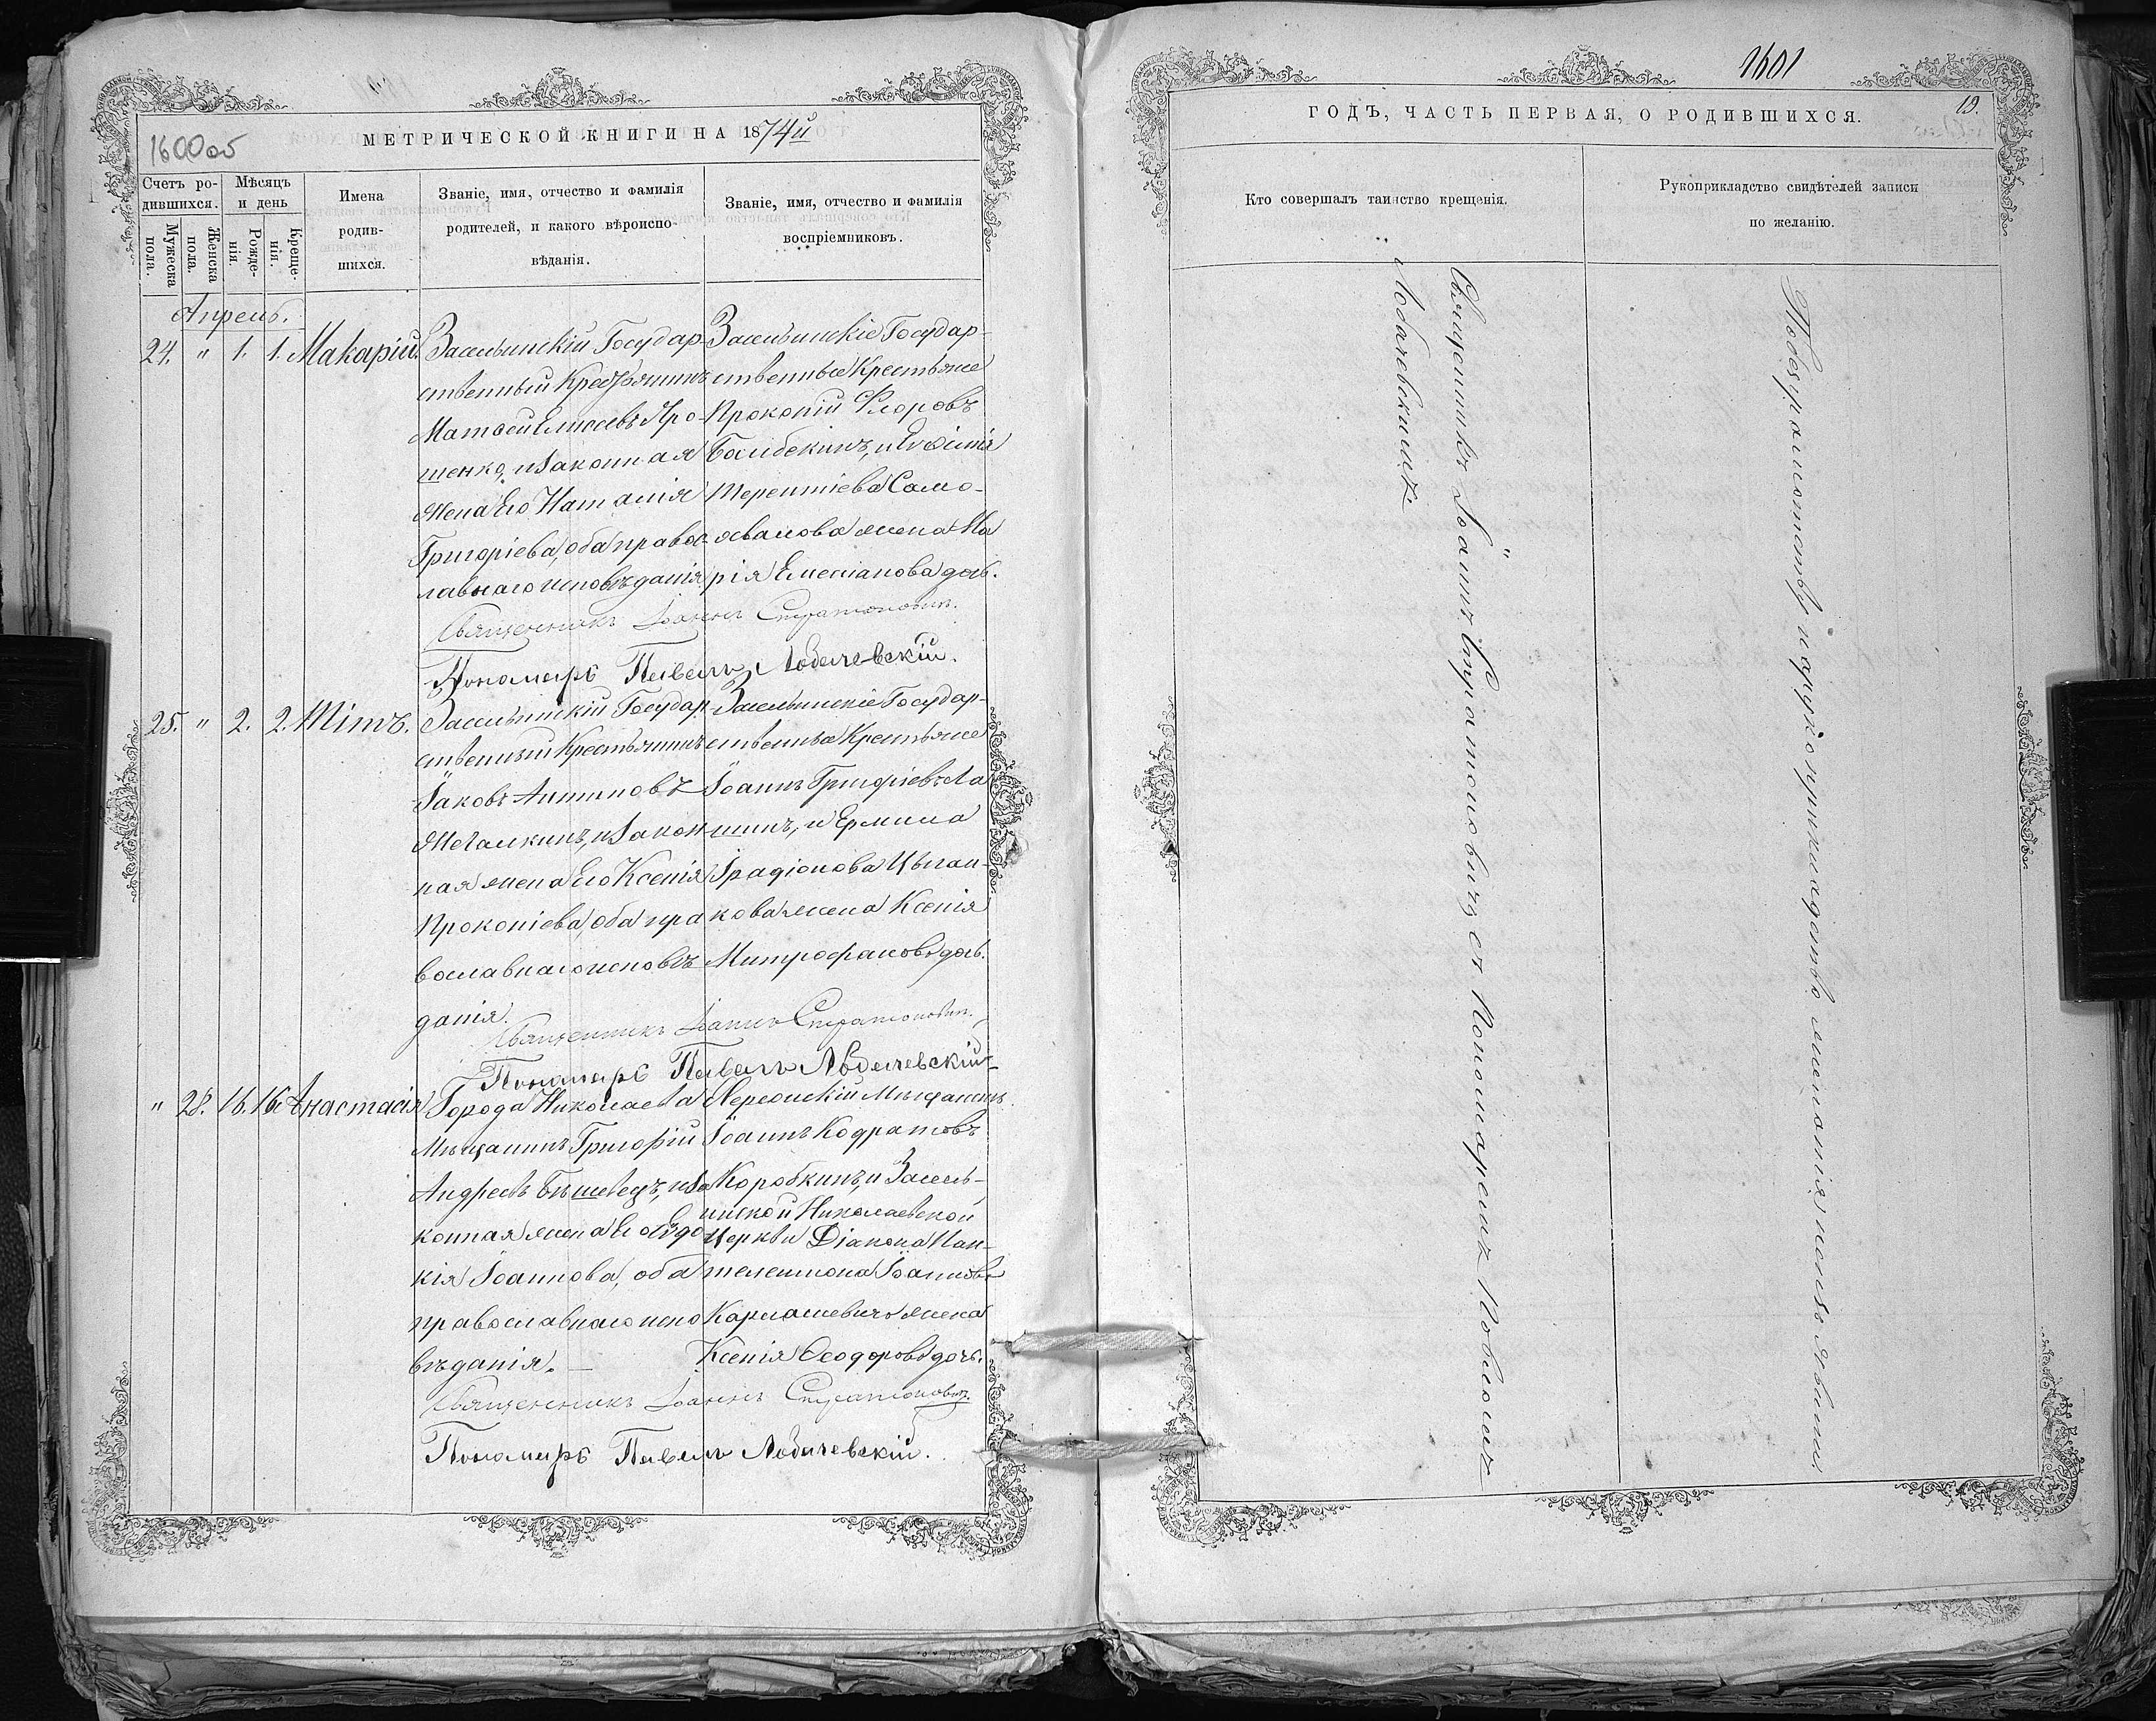 1600об
МЕТРИЧЕСКОЙ КНИГИ НА 1874й
Счетъ ро-
дившихся.
Мужеска
пола.
Женска
пола.
Мѣсяцъ
и день
Рожде-
нія.
Креще-
нія.
Имена
родив-
шихся.
Званіе, имя, отчество и фамилія
родителей, и какого вѣроиспо-
вѣданія.
Званіе, имя, отчество и фамилія
воспріемниковъ.
Апрель.
24. " 1. 1. Макарій.
Засельинскій Государ-
ственный Крестьянинъ
Матвей Елисеевъ Яро-
шенко, и законная
жена Его Наталія
Григоріева, оба правос-
лавнаго исповѣданія
Засельинскіе Государ-
ственные Крестьяне
Прокопій Флоровъ
Балбекинъ, и Евѳимія
Терентіева Само-
йлова жена Ма
рія Емеліанова дочь.
Священникъ Іоаннъ Стратоновичъ.
Пономарь Павелъ Лобачевскій.
25. " 2. 2. Тітъ.
Засельинскій Государ-
ственный Крестьянинъ
Іаковъ Антиповъ
Мечалкинъ, и закон
ная жена Его Ксенія
Прокопіева, оба пра
вославнаго исповѣ
данія.
Засельинскіе Государ-
ственные Крестьяне
Іоаннъ Григоріевъ Ла
шинъ, и Ермила
Ірадіонова Цыган-
кова жена Ксенія
Митрофанова дочь.
Священникъ Іоаннъ Стратоновичъ.
Пономарь Павелъ Лобачевскій
" 28. 16. 16. Анастасія
Города Николаева
Мѣщанинъ Григорій
Андреевъ Бѣшевецъ, и за
конная жена Его Евдо
кія Іоаннова, оба
православнаго испо
вѣданія.
Херсонскій Мѣщанинъ
Іоаннъ Кодратовъ
Коробкинъ, и Засель-
инской Николаевской
Церкви Діакона Пан-
телеимона Іоаннова
Карпашевича жена
Ксенія Ѳеодорова дочь.
Священникъ Іоаннъ Стратоновичъ.
Пономарь Павелъ Лобачевскій.
1601
19.
ГОДЪ, ЧАСТЬ ПЕРВАЯ, О РОДИВШИХСЯ.
Кто совершалъ таинство крещенія.
Рукоприкладство свидѣтелей записи
по желанію.
Священникъ Іоаннъ Стратоновичъ съ Пономаремъ Павломъ
Лобачевскимъ.
По безграмотству и рукоприкладству желанія, не изъявили